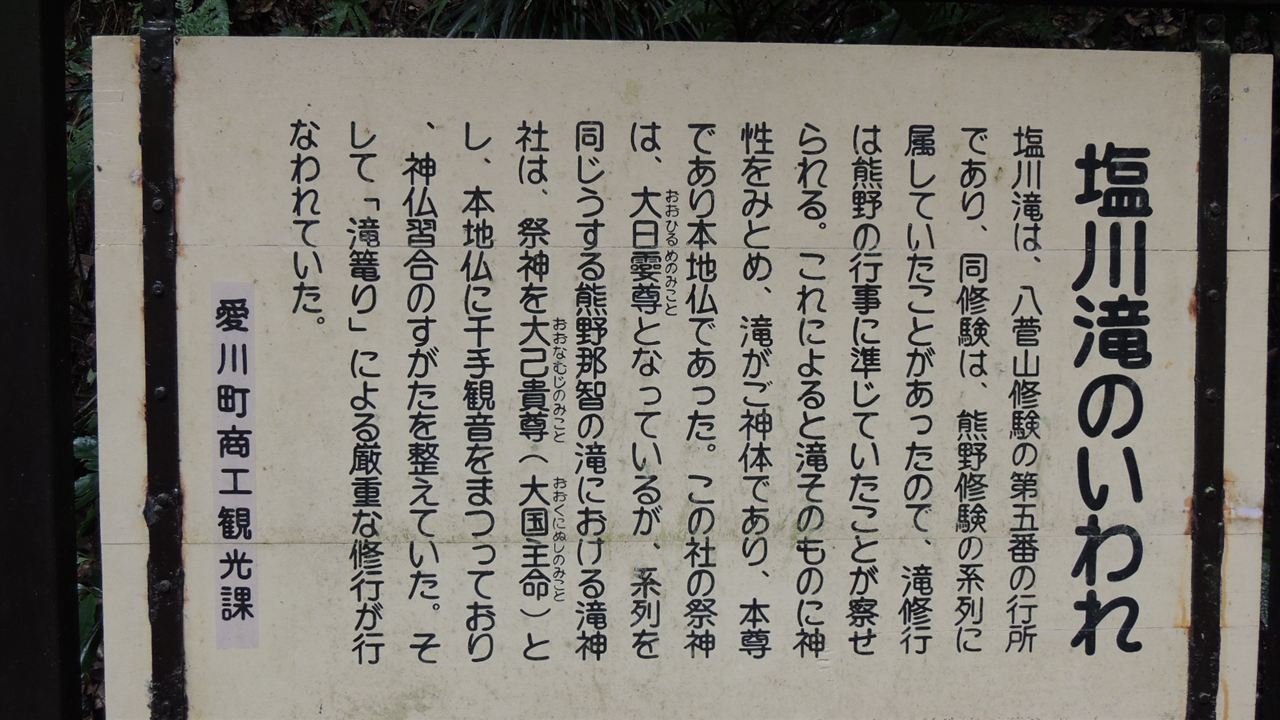 塩川滝のいわれ
塩川滝は、八菅山修験の第五番の行所
であり、同修験は、熊野修験の系列に
属していたことがあったので、滝修行
は熊野の行事に準じていたことが察せ
られる。これによると滝そのものに神
性をみとめ、滝がご神体であり、本尊
であり本地仏であった。この社の祭神
は、大日孁尊となっているが、系列を
おおひるめのみこと
同じうする熊野那智の滝における滝神
社は、祭神を大己貴尊(大国主命)と
おおなむじのみこと
おおくにぬしのみこと
し、本地仏に千手観音をまつっており
、神仏習合のすがたを整えていた。そ
して「滝篭り」による厳重な修行が行
なわれていた。
愛川町商工観光課